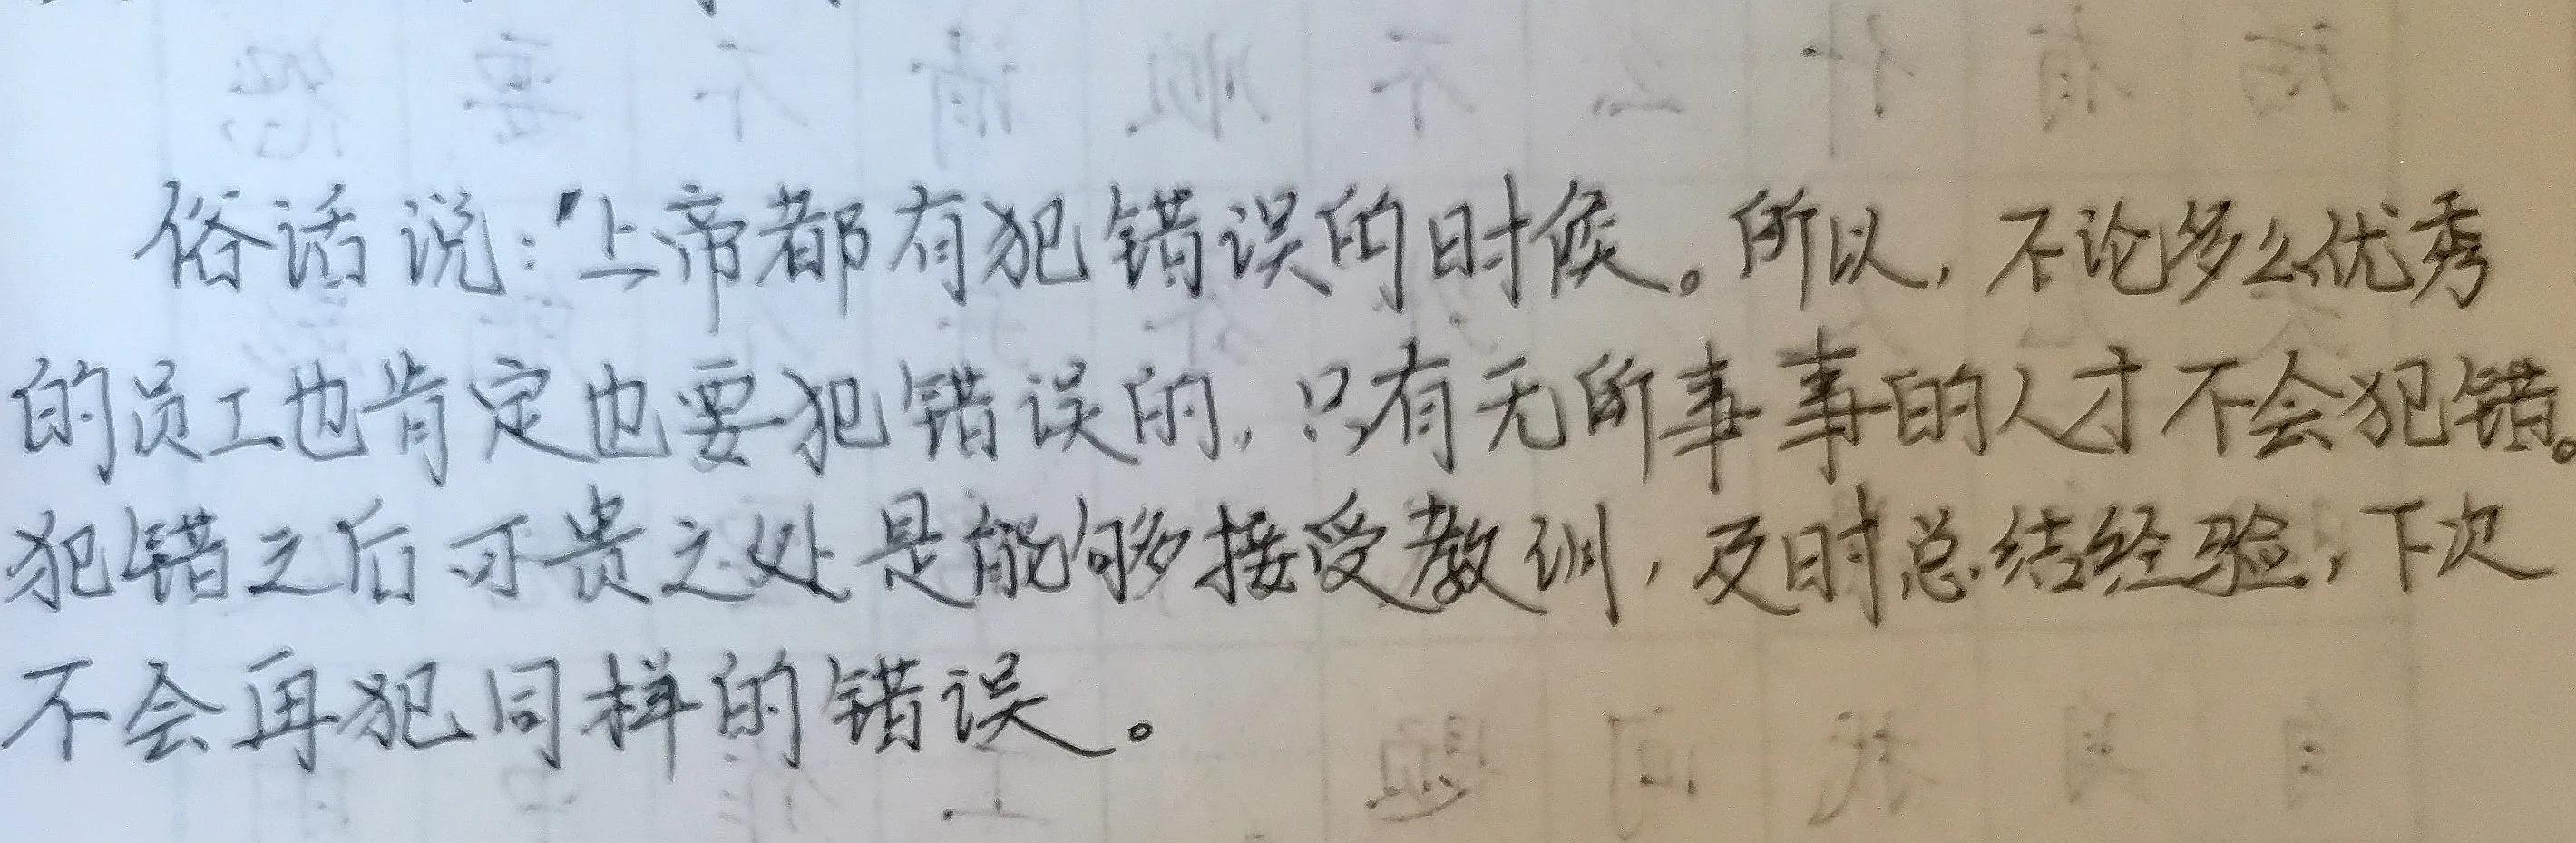 俗话说：“上帝都有犯错误的时候。所以，不论多么优秀
的员工也肯定也要犯错误的，只有无所事事的人才不会犯错。
犯错之后可贵之处是能够接受教训，及时总结经验，下次
不会再犯同样的错误。